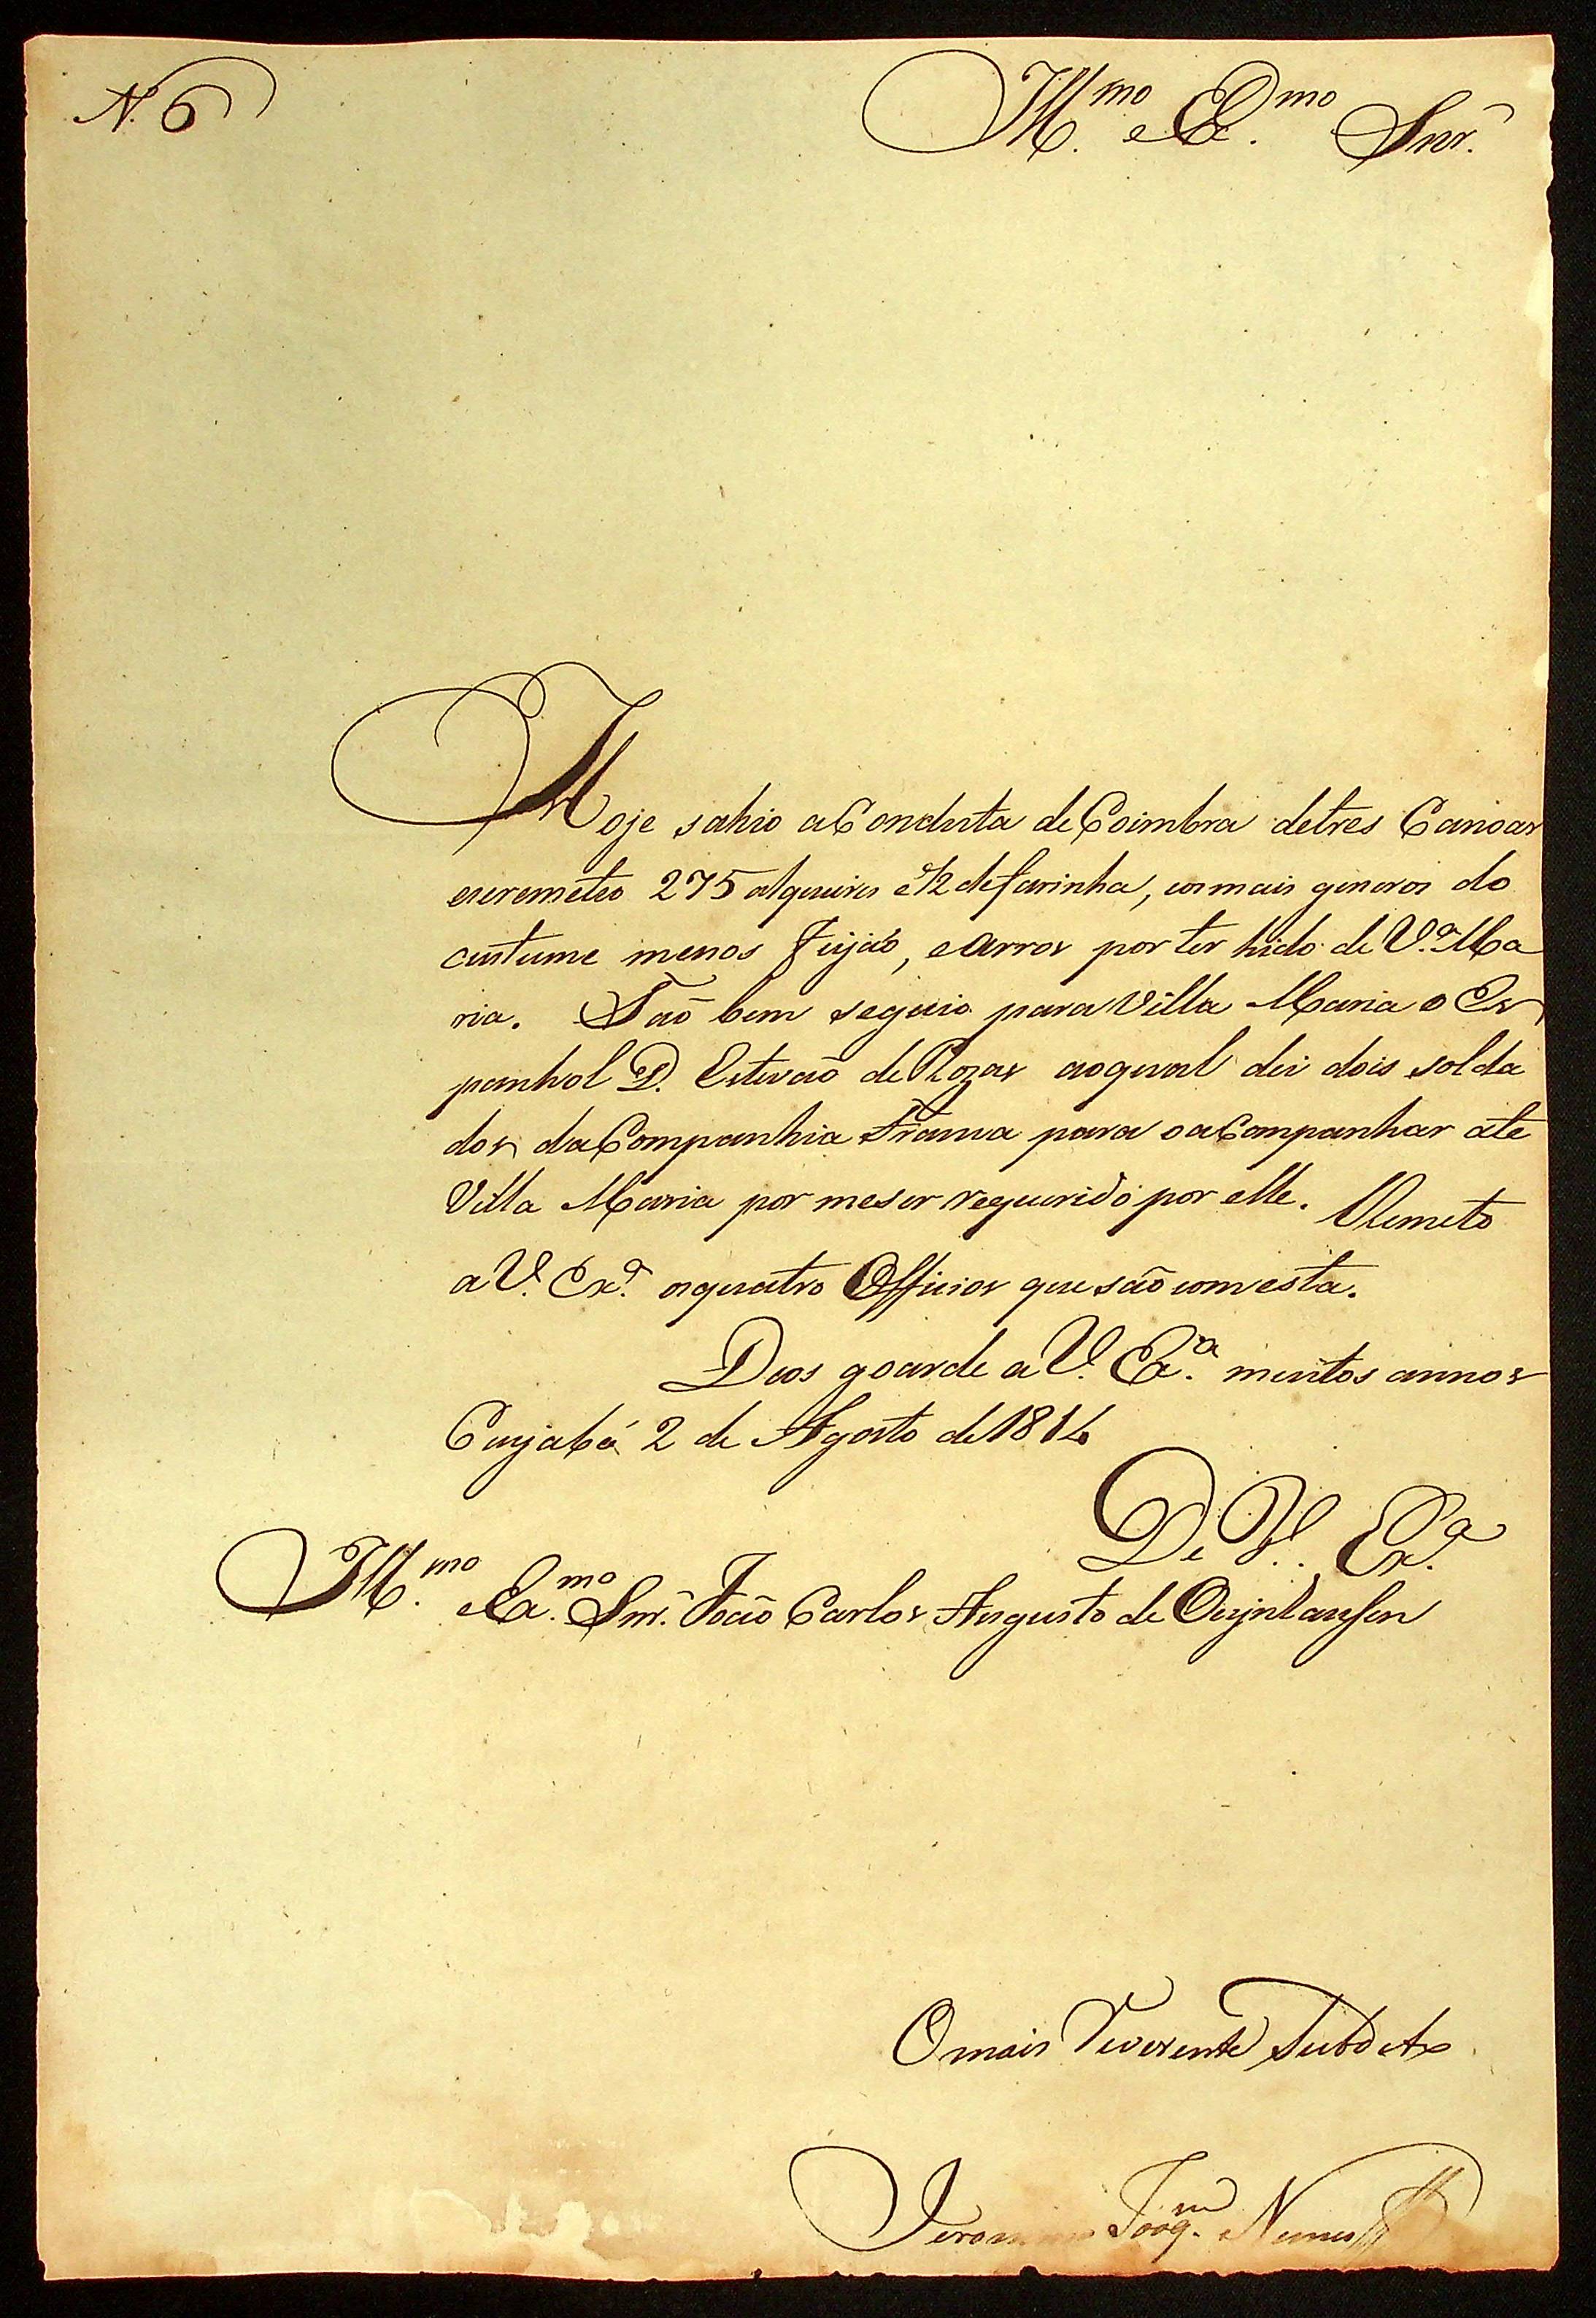 N. 6
Ill.mo e Ex.mo Snr.
Hoje sahio a Conduta de Coimbra de tres Canoas
e se remeteo 275 alqueires e 1/2 de farinha, e os mais generos do
custume menos Feijão, e Arros por ter hido de V.ª Ma
ria. Tão bem seguio para Villa Maria o Es
panhol D. Estevão de Rozas ao qual dei dois solda
dos da Companhia Franca para o aCompanhar ate
Villa Maria por me ser requerido por elle. Remeto
a V. Ex.ª os quatro Officios que são com esta.
Deos goarde a V. Ex.ª muitos annos
Cuyabá 2 de Agosto de 1814
De V. Ex.ª
Ill.mo e Ex.mo Snr. João Carlos Augusto de Oeynhausen
O mais Reverente Subd.º
Jeronimo Joaq.m Nunes